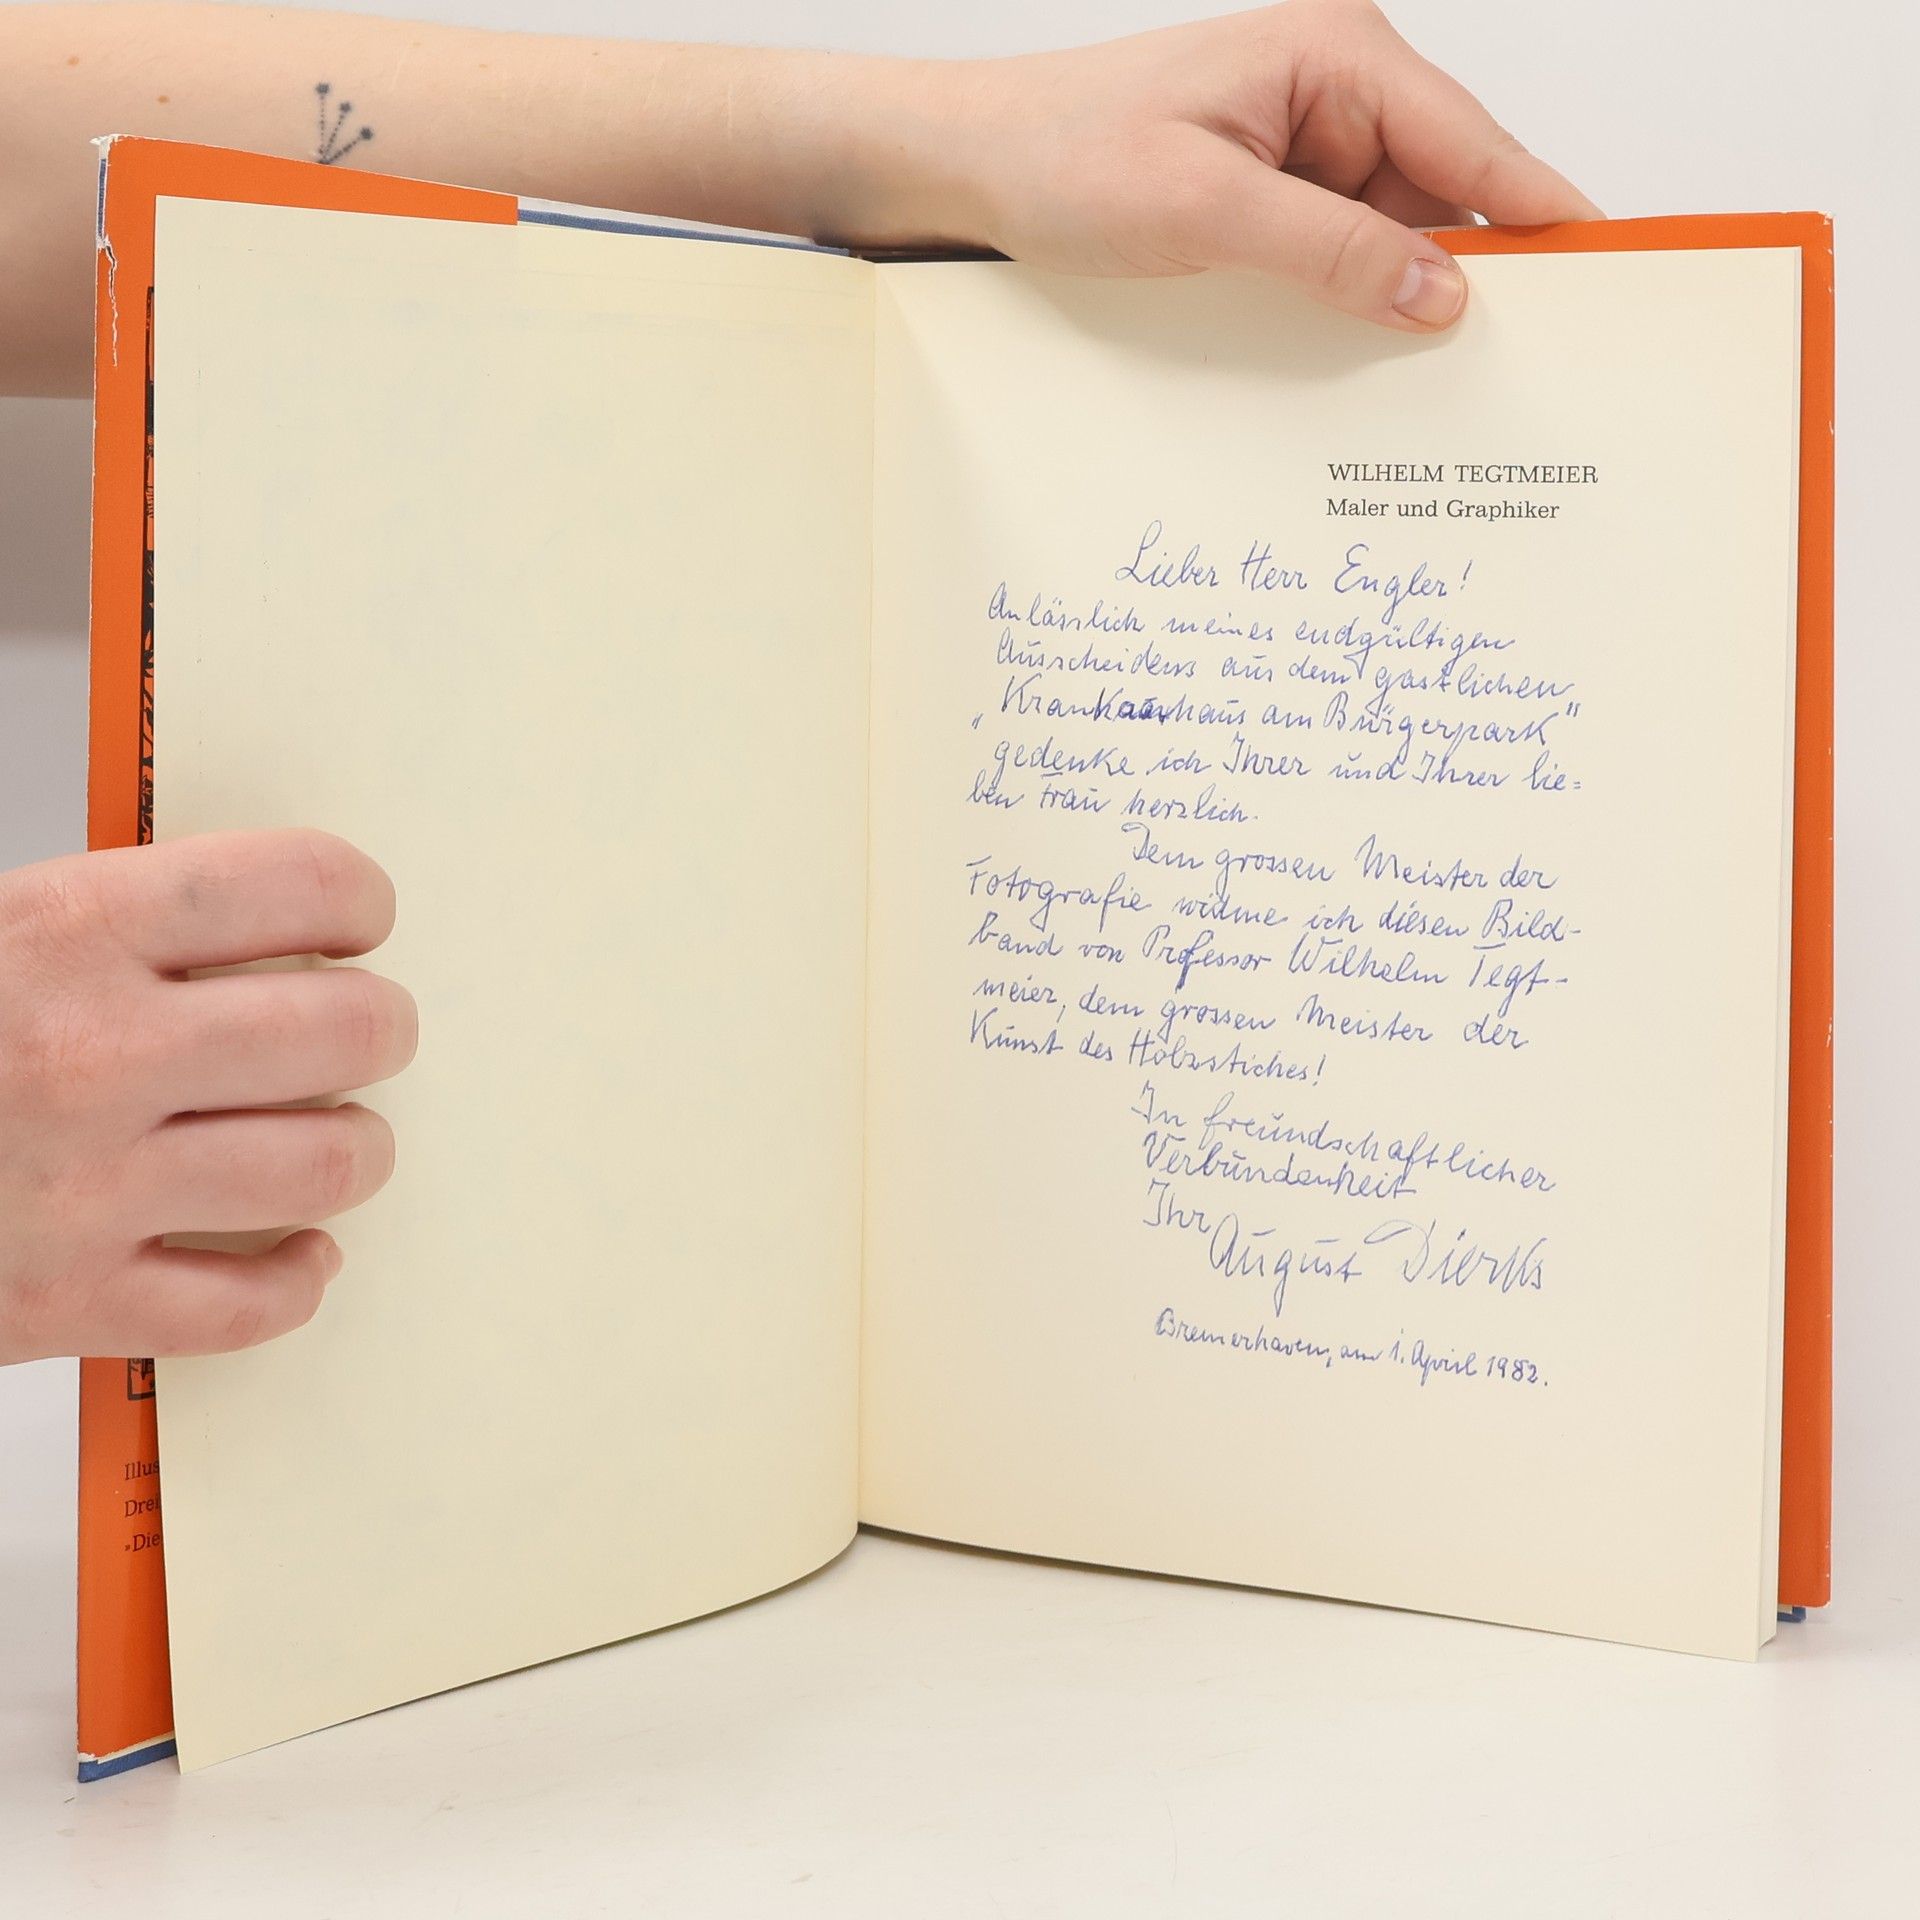 WILHELM TEGTMEIER
Maler und Graphiker
Lieber Herr Engler!
Anlässlich meines endgültigen
Ausscheidens aus dem gastlichen
„Krankenhaus am Bürgerpark"
gedenke ich Ihrer und Ihrer lie=
ben Frau herzlich.
Dem grossen Meister der
Fotografie widme ich diesen Bild-
band von Professor Wilhelm Tegt-
meier, dem grossen Meister der
Kunst des Holzstiches!
In freundschaftlicher
Verbundenheit
Ihr
August Dierks
Bremerhaven, am 1. April 1982.
Illus
Drei
»Die